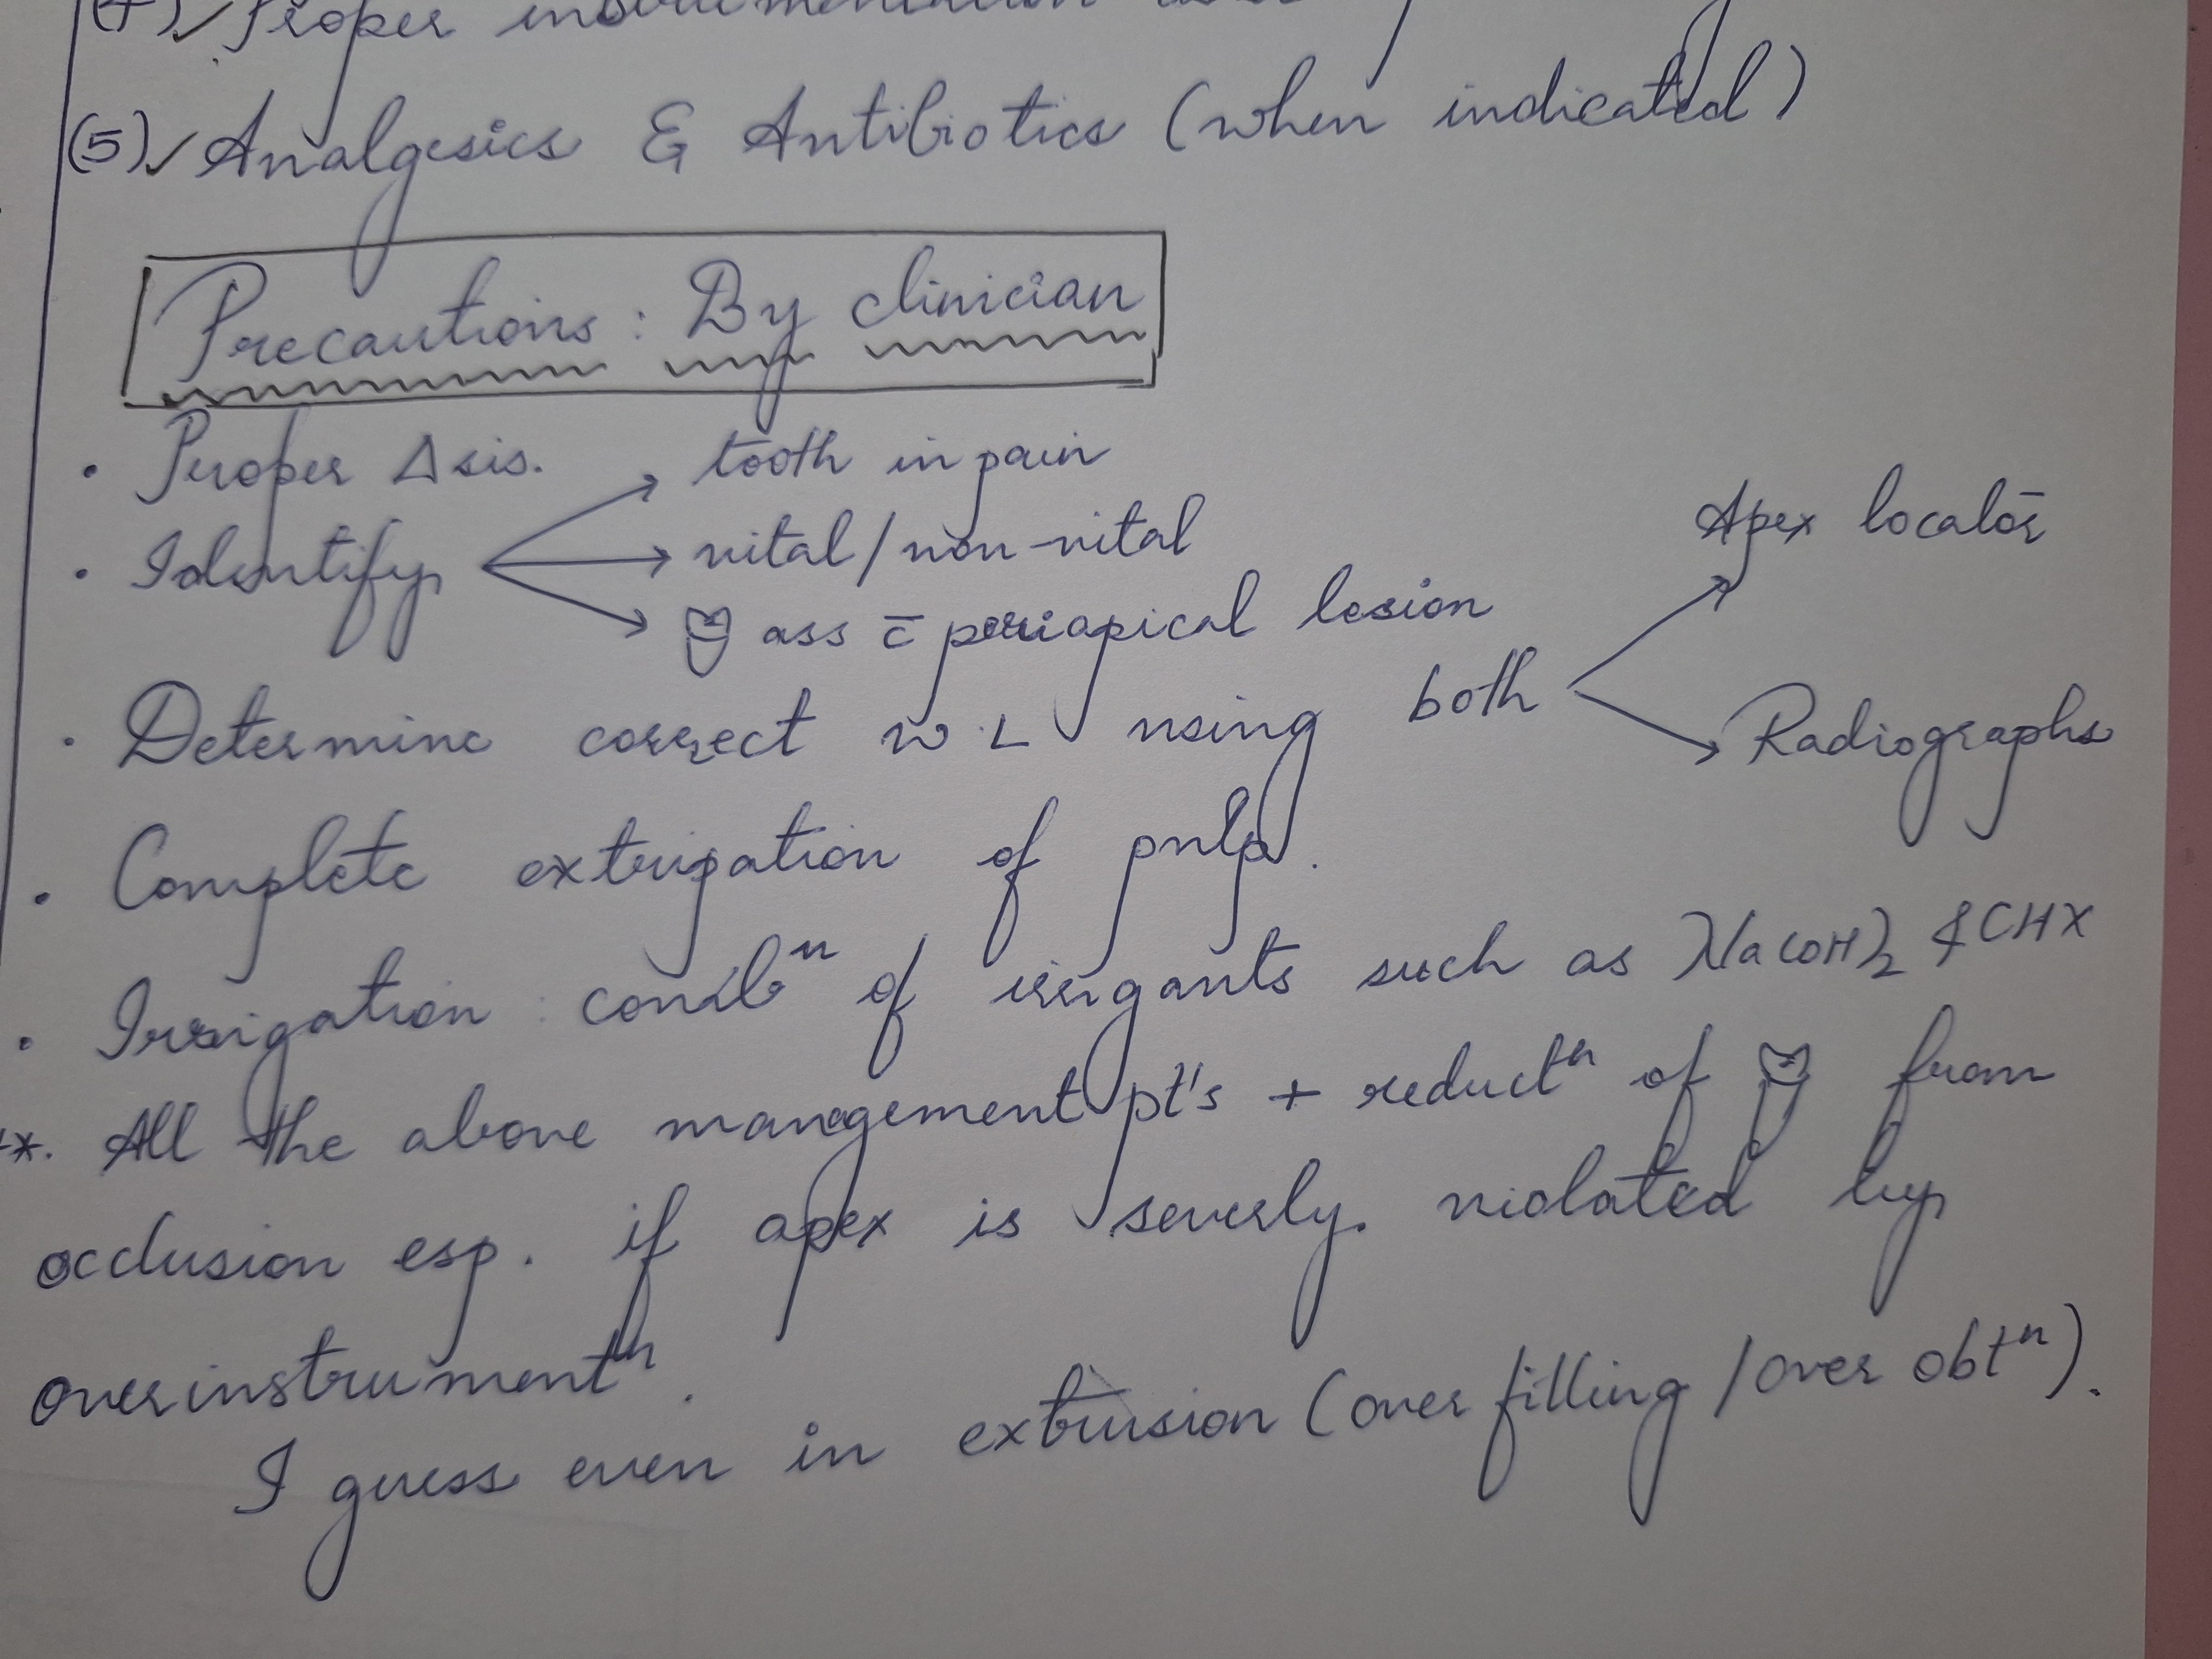 Proper
(5) ✓ Analgesics & Antibiotics (when indicated)
Precautions : By clinician
• Proper Δsis.
• Identify → tooth in pain
→ vital / non-vital
→ ass c̄ periapical lesion
• Determine correct W.L using both → Apex locator
→ Radiographs
• Complete extirpation of pulp.
• Irrigation : combⁿ of irrigants such as Na(OH)₂ & CHX
*. All the above management pt's + reductⁿ of from
occlusion esp. if apex is severly violated by
overinstrumentⁿ.
I guess even in extrusion (over filling / over obtⁿ).